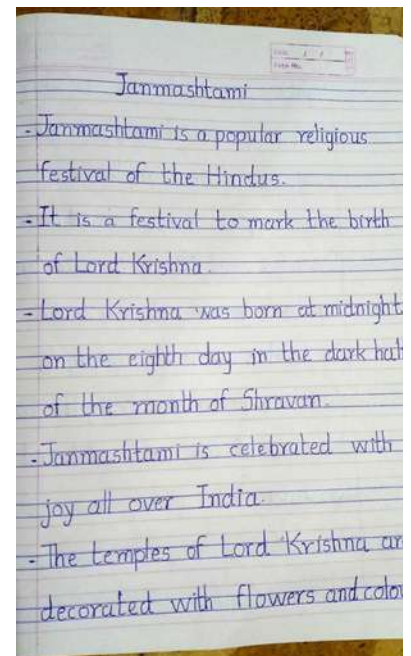 Janmashtami
- Janmashtami is a popular religious
festival of the Hindus.
- It is a festival to mark the birth
of Lord Krishna.
- Lord Krishna was born at midnight
on the eighth day in the dark hal
of the month of Shravan.
- Janmashtami is celebrated with
joy all over India.
- The temples of Lord Krishna ar
decorated with flowers and colou